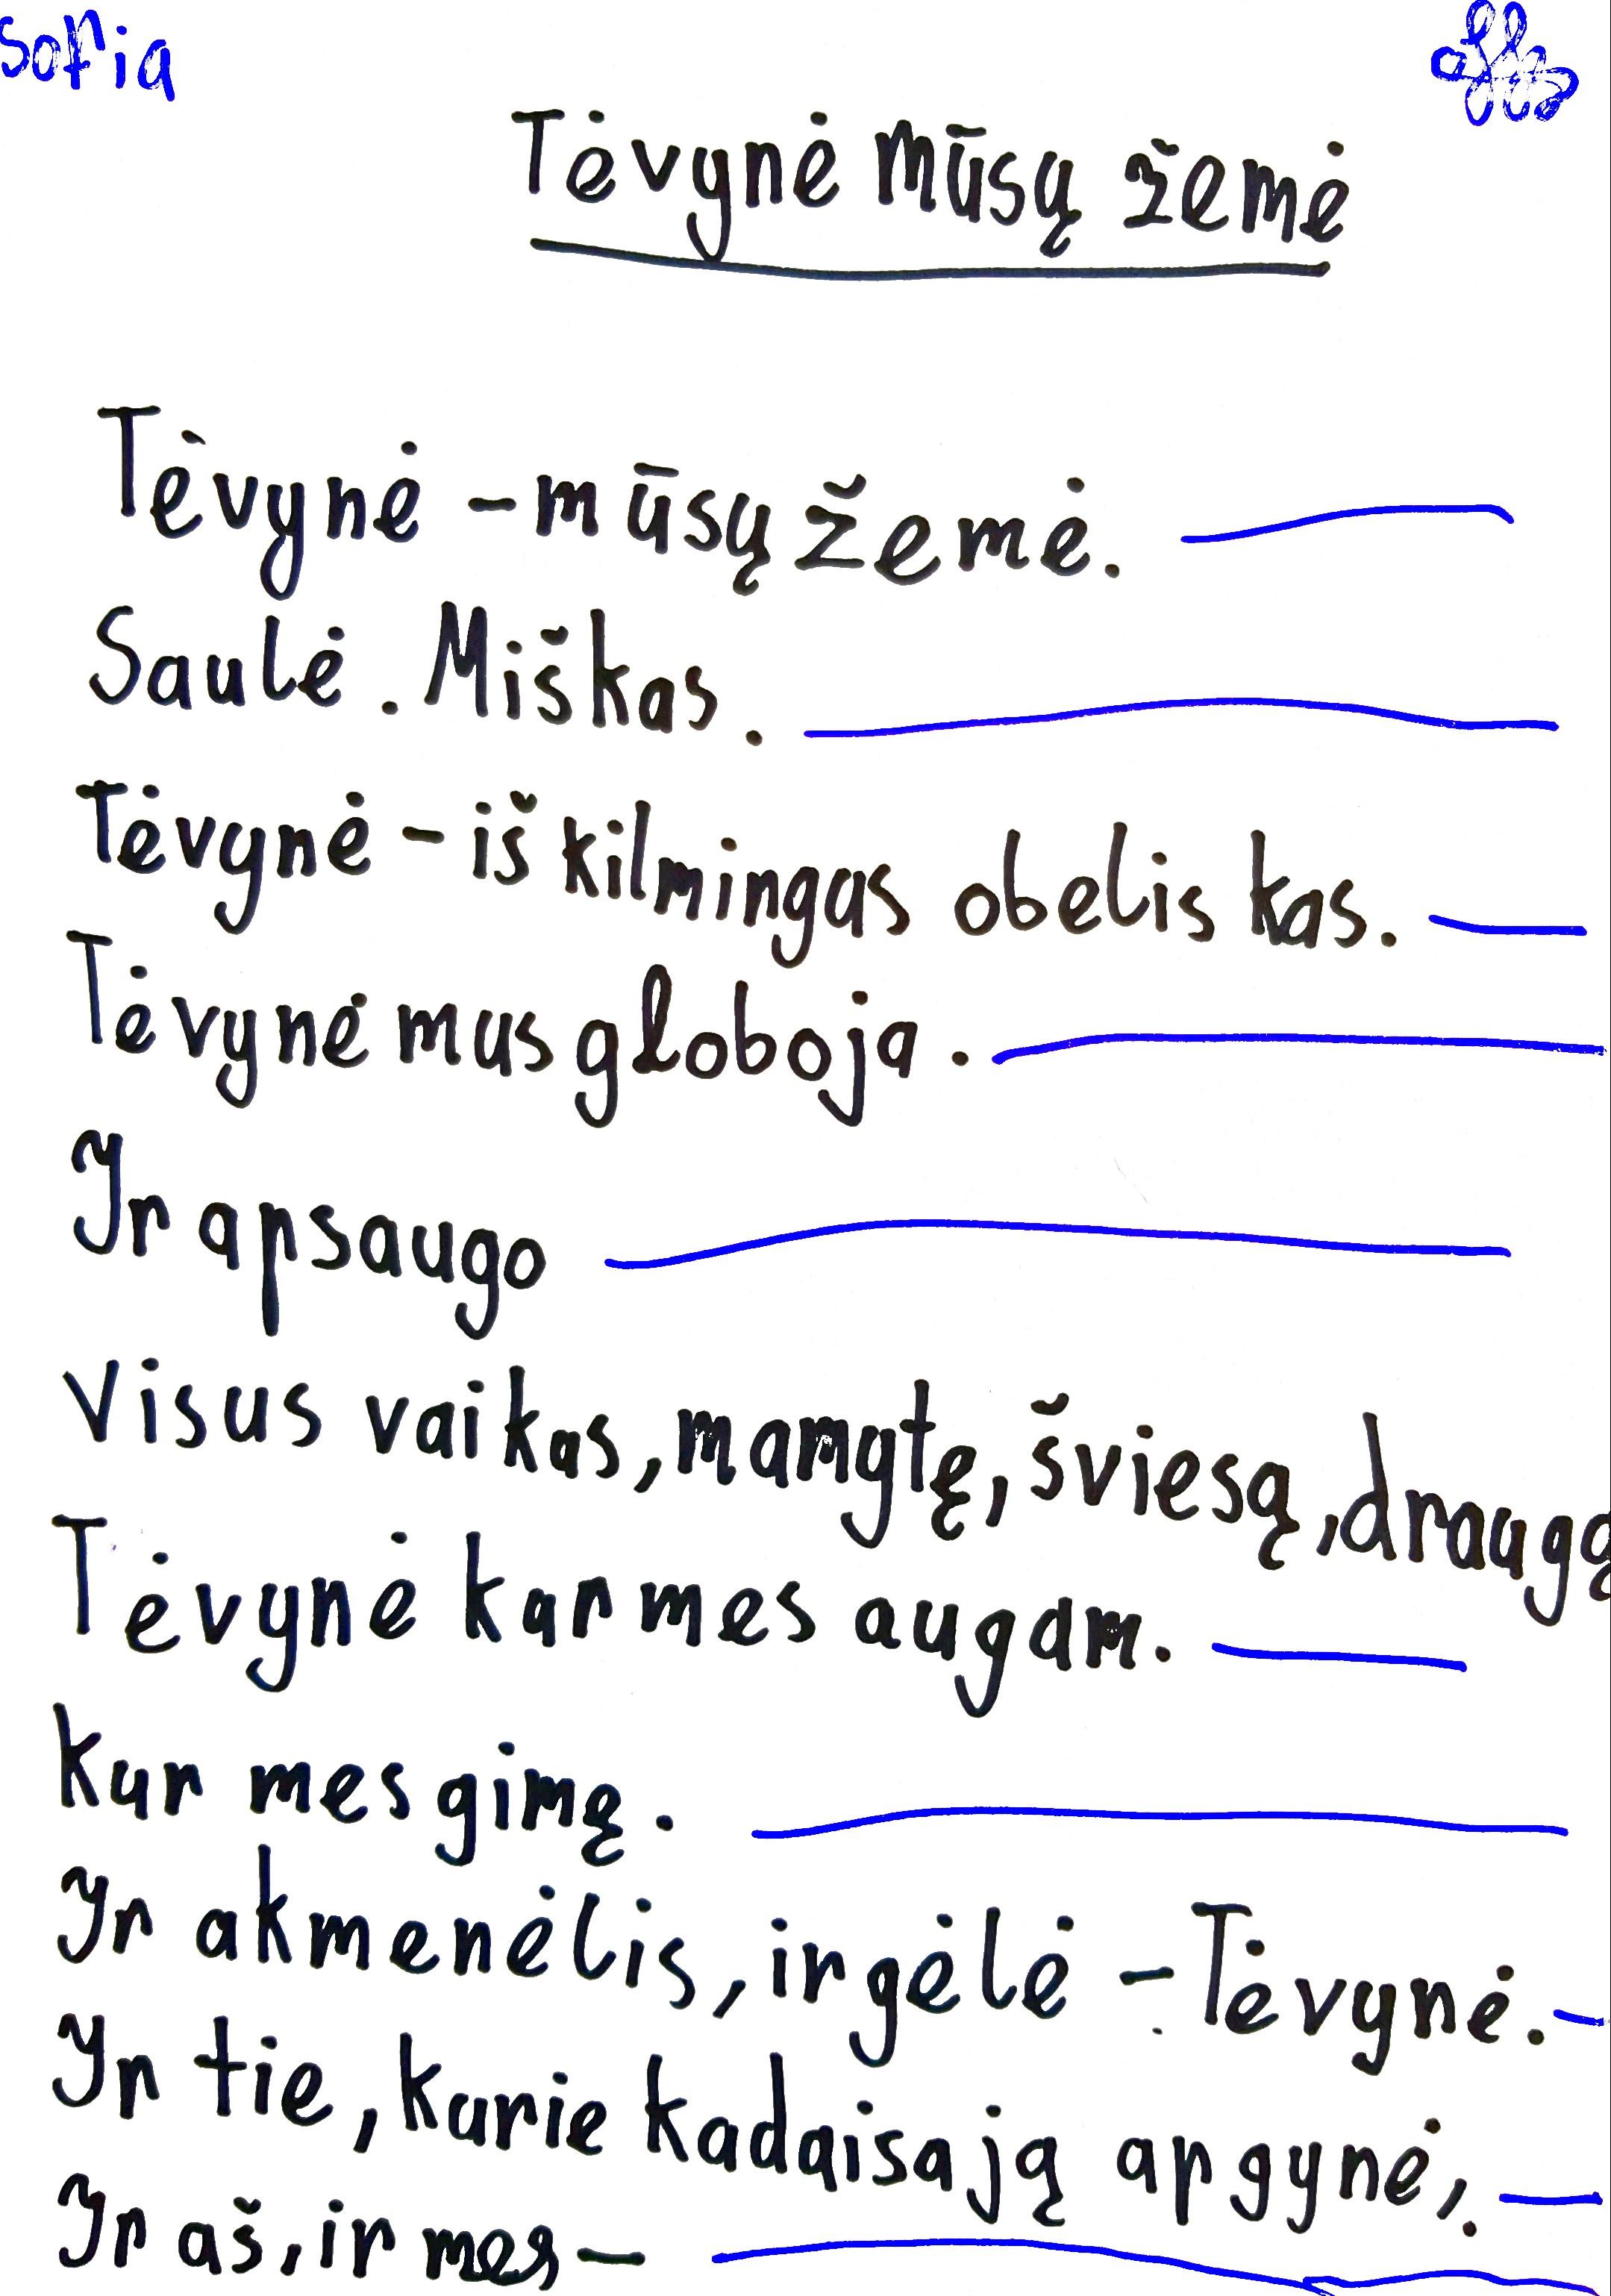 Sofia
Tėvynė mūsų žemė
Tėvynė - mūsų žemė.
Saulė. Miškas.
Tėvynė - iškilmingas obeliskas.
Tėvynė mus globoja.
Ir apsaugo
Visus vaikas, mamytę, šviesą, draugą
Tėvynė kur mes augam.
Kur mes gimę.
Ir akmenėlis, ir gėlė - Tėvynė.
Ir tie, kurie kadaisają apgynė,
Ir aš, ir mes -